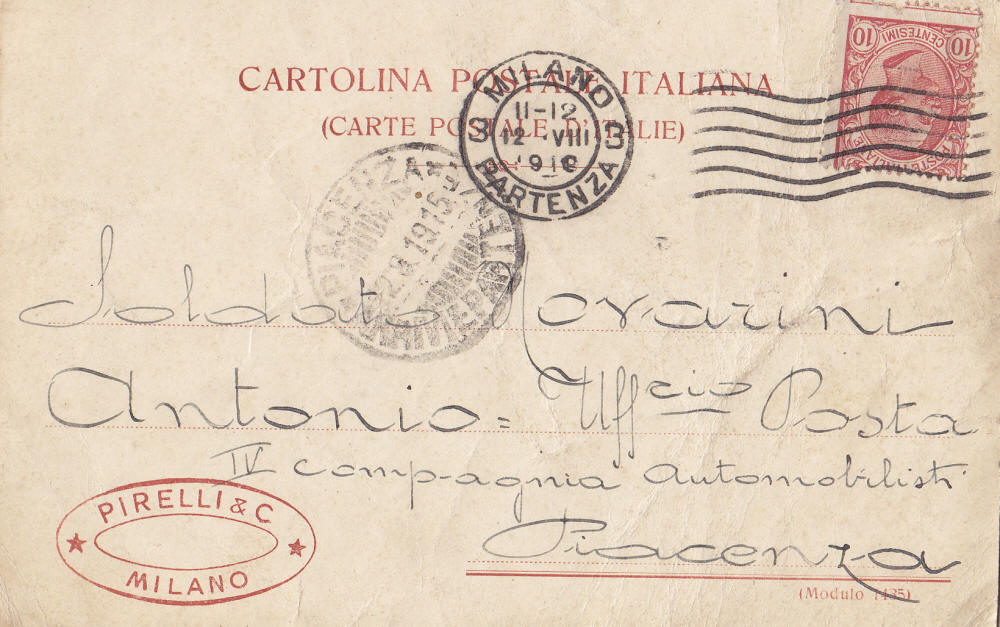 CARTOLINA POSTALE ITALIANA
(CARTE POSTALE D'ITALIE)
MILANO
3 3
11-12
12 VIII
PARTENZA
10 10
CENTESIMI
PIACENZA
1915
Soldato Novarini
Antonio = Ufficio Posta
IV compagnia automobilisti
Piacenza
PIRELLI & C
MILANO
(Modulo 1435)